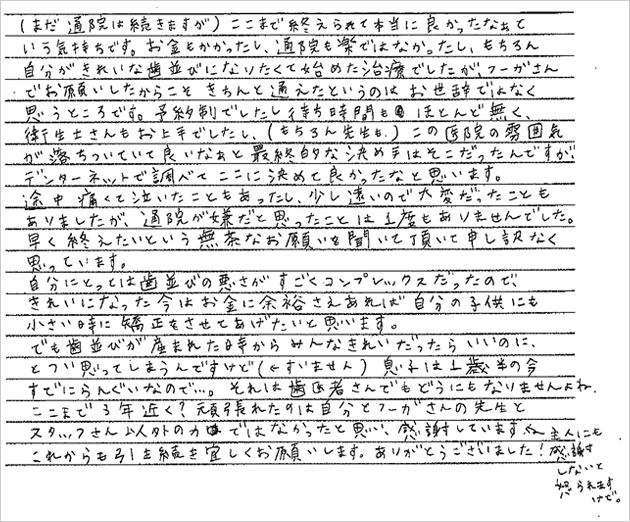 (まだ通院は続きますが)ここまで終えられて本当に良かったなぁと
いう気持ちです。お金もかかったし、通院も楽ではなかったし、もちろん
自分がきれいな歯並びになりたくて始めた治療でしたが、フーガさん
でお願いしたからこそきちんと通えたというのはお世辞ではなく
思うところです。予約制でしたし待ち時間もほとんど無く、
衛生士さんもお上手でしたし、(もちろん先生も。)この医院の雰囲気
が落ちついていて良いなぁと最終的な決め手はそこだったんですが、
インターネットで調べてここに決めて良かったなと思います。
途中痛くて泣いたこともあったし、少し遠いので大変だったことも
ありましたが、通院が嫌だと思ったことは1度もありませんでした。
早く終えたいという無茶なお願いを聞いて頂いて申し訳なく
思っています。
自分にとっては歯並びの悪さがすごくコンプレックスだったので、
きれいになった今はお金に余裕さえあれば自分の子供にも
小さい時に矯正をさせてあげたいと思います。
でも歯並びが産まれた時からみんなきれいだったらいいのに、
とつい思ってしまうんですけど(←すいません)息子は1歳半の今
すでにらんぐいなので…。それは歯医者さんでもどうにもなりませんよね。
ここまで3年近く?頑張れたのは自分とフーガさんの先生と
スタッフさん以外の力ではなかったと思い、感謝しています。
これからも引き続き宜しくお願いします。ありがとうございました!
主人にも
感謝
しないと
怒られます
けど。